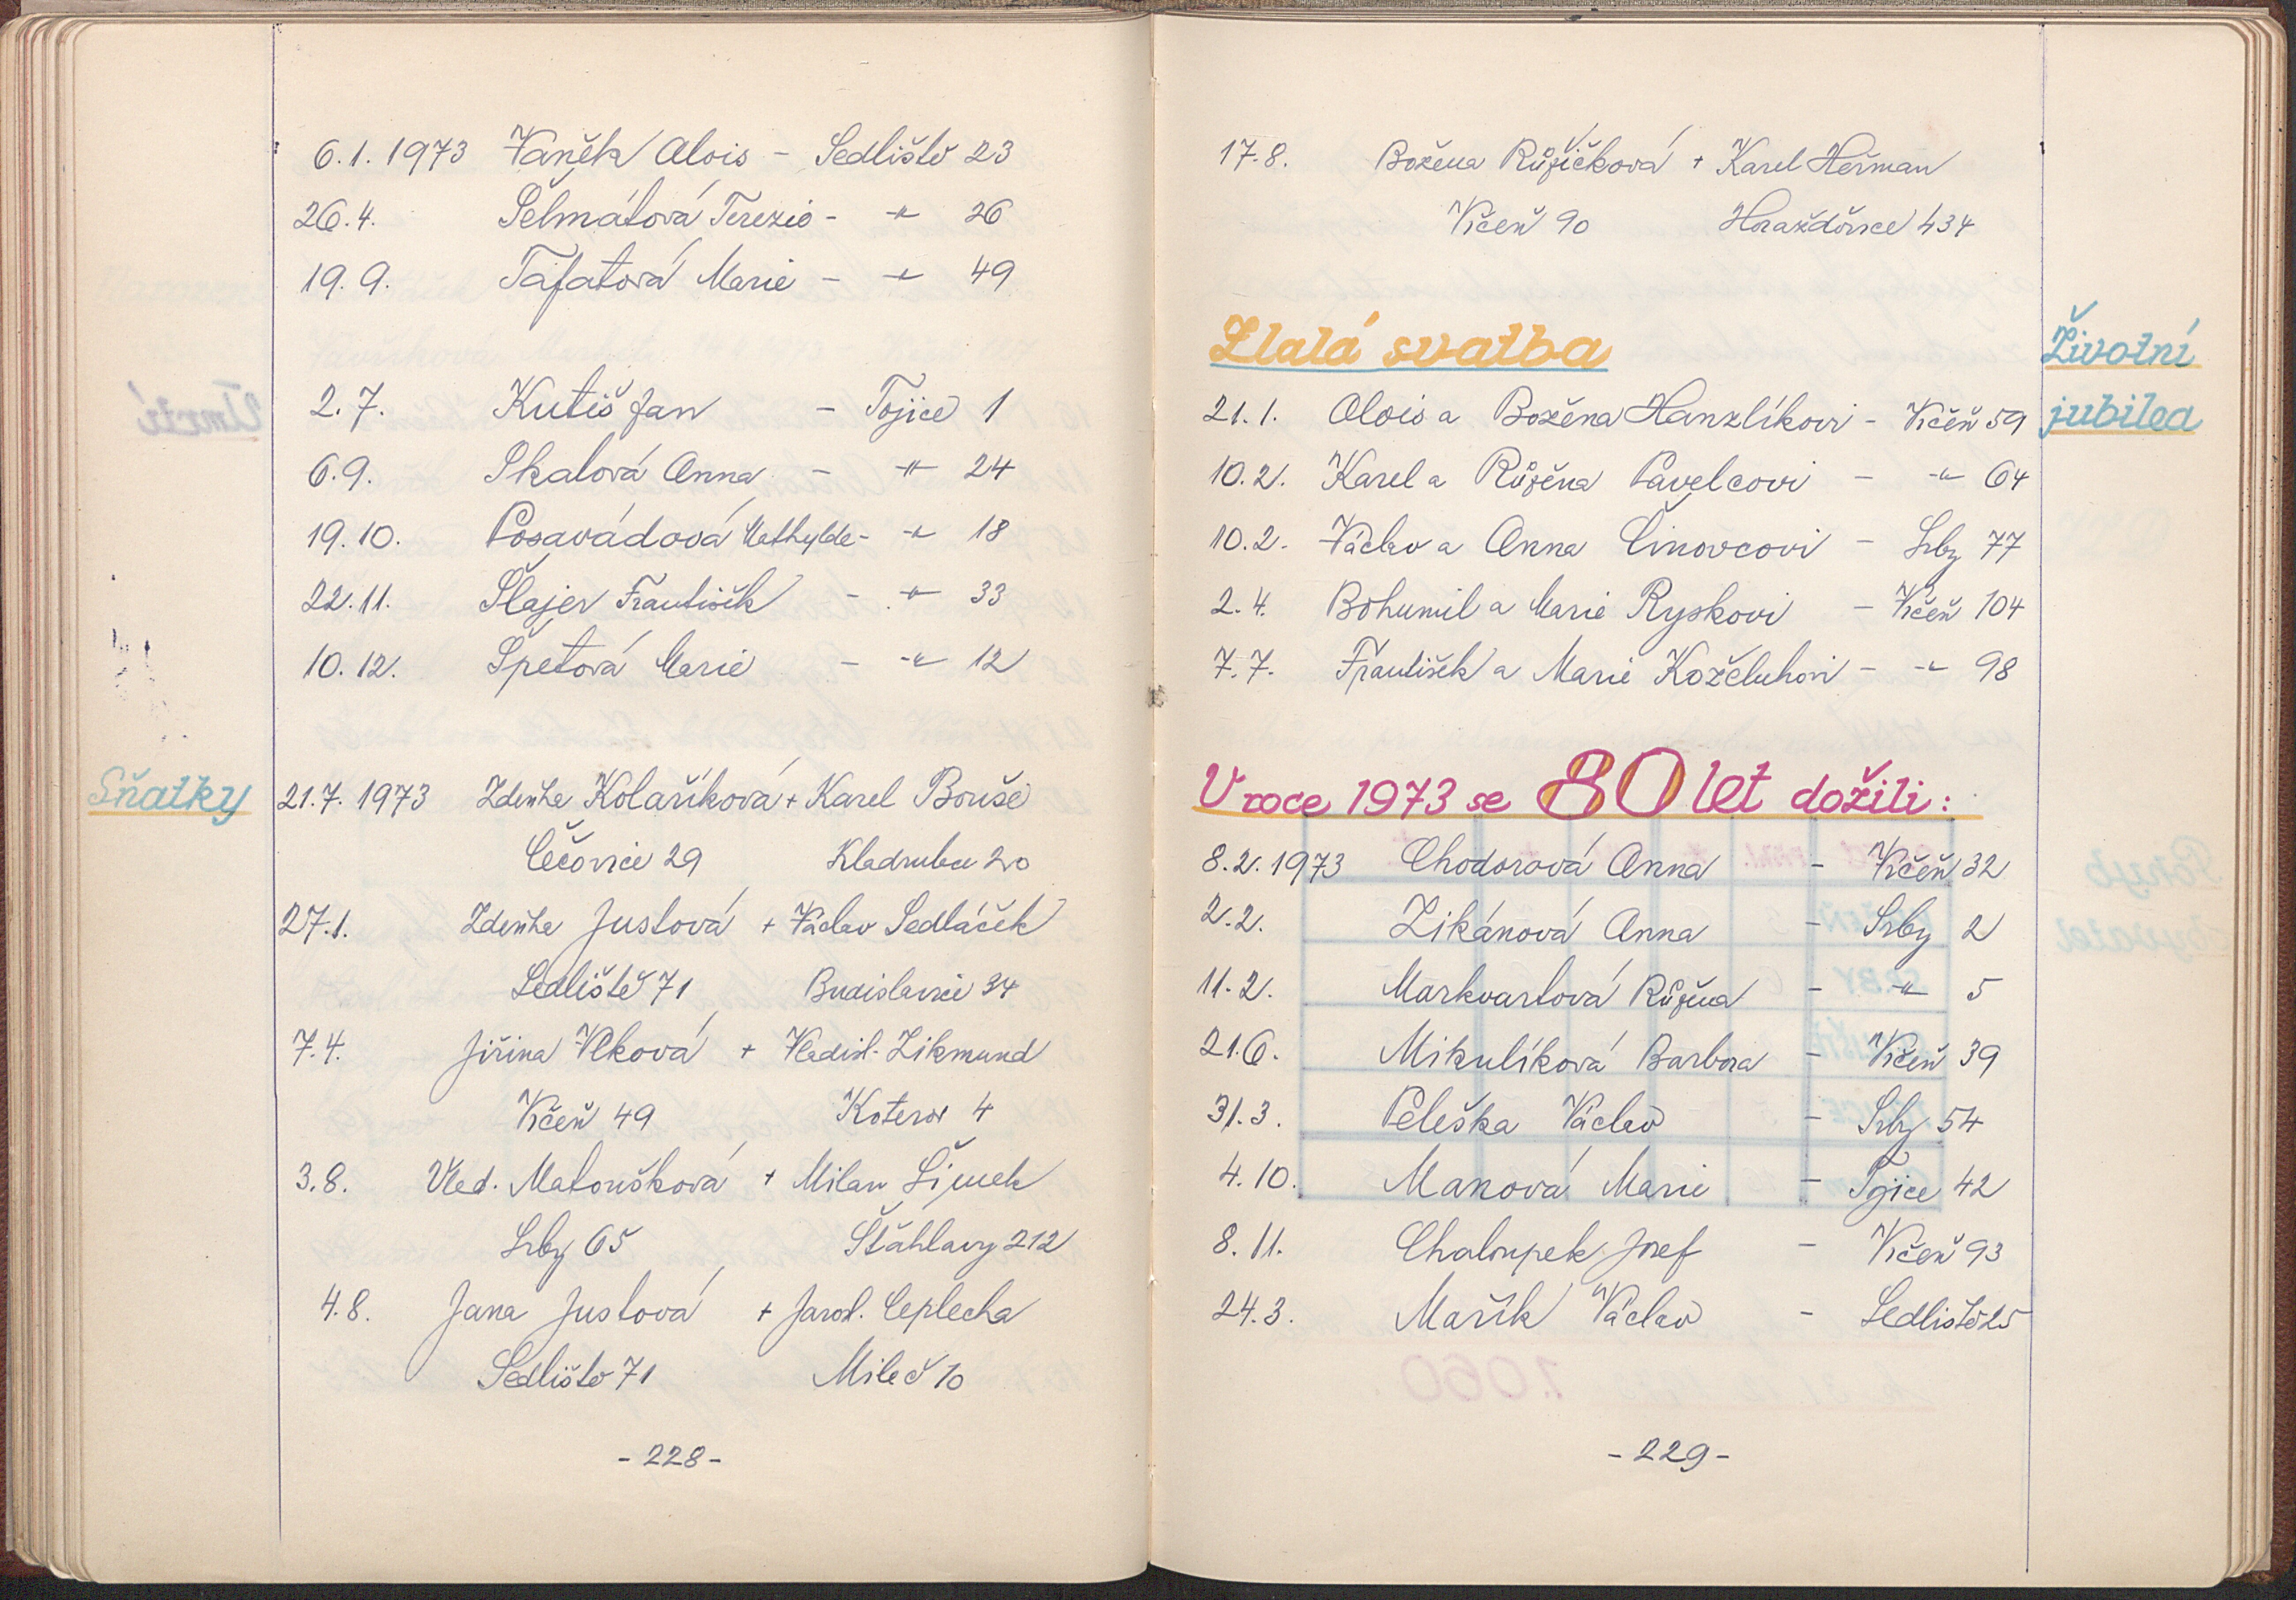 6.1. 1973 Vaněk Alois - Sedliště 23
26.4. Šelmátová Terezie - -"- 26
19.9. Tafatová Marie - -"- 49
2.7. Kutiš Jan - Tojice 1
6.9. Skalová Anna - -"- 24
19.10. Posavádová Mathylda - -"- 18
22.11. Šlajer František - -"- 33
10.12. Špetová Marie - -"- 12
Sňatky
21.7. 1973 Zdeňka Kolaříková + Karel Bouše
Čečovice 29 Kladruby 20
27.1. Zdeňka Justová + Václav Sedláček
Sedliště 71 Budislavice 34
7.4. Jiřina Vlková + Vladisl. Zikmund
Vrčeň 49 Koterov 4
3.8. Vlad. Matoušková + Milan Šimek
Srby 65 Štáhlavy 212
4.8. Jana Justová + Jarosl. Ceplecha
Sedliště 71 Mileč 10
- 228 -
17.8. Božena Růžičková + Karel Heřman
Vrčeň 90 Horažďovice 434
Zlatá svatba
Životní
jubilea
21.1. Alois a Božena Hanzlíkovi - Vrčeň 59
10.2. Karel a Růžena Pavelcovi - -"- 64
10.2. Václav a Anna Činovcovi - Srby 77
2.4. Bohumil a Marie Ryskovi - Vrčeň 104
7.7. František a Marie Koželuhovi - -"- 98
V roce 1973 se 80 let dožili:
8.2. 1973 Chodorová Anna - Vrčeň 32
2.2. Zikánová Anna - Srby 2
11.2. Markvartová Růžena - -"- 5
21.6. Mikulíková Barbora - Vrčeň 39
31.3. Peleška Václav - Srby 54
4.10. Manová Marie - Tojice 42
8.11. Chaloupek Josef - Vrčeň 93
24.3. Mařík Václav - Sedliště 25
- 229 -